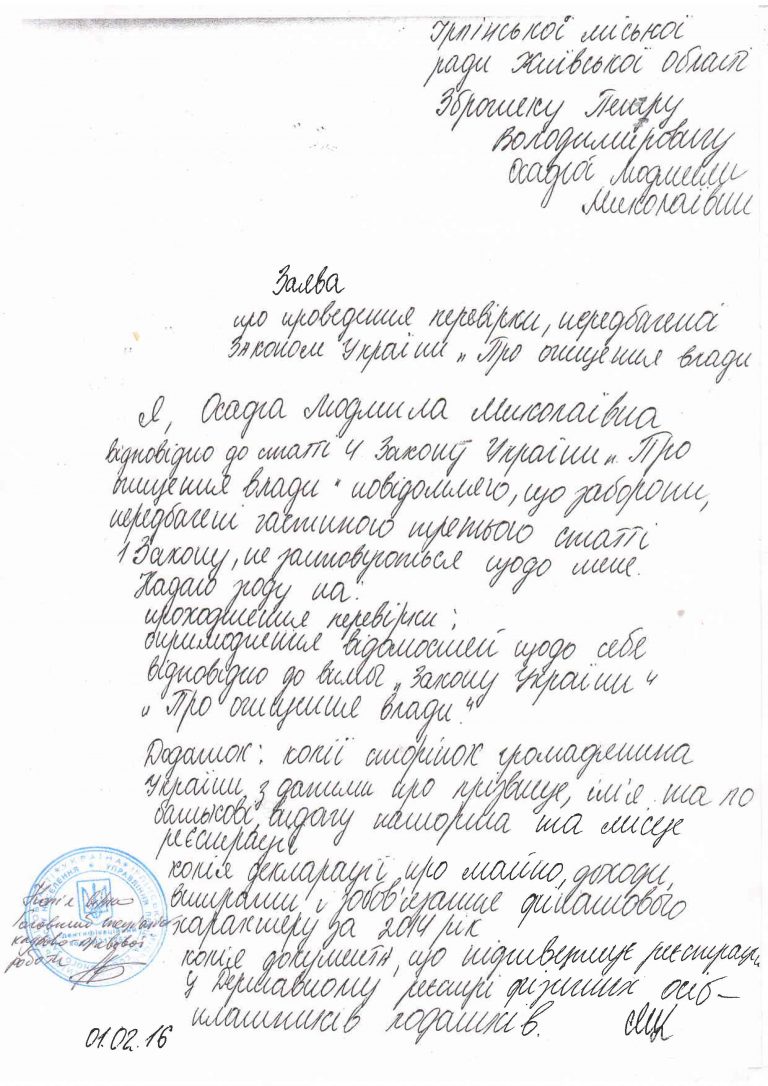 Ірпінської міської
ради Київської області
Зброжеку Петру
Володимировичу
Осадчої Людмили
Миколаївни
Заява
про проведення перевірки, передбаченої
Законом України „Про очищення влади
Я, Осадча Людмила Миколаївна
відповідно до статті 4 Закону України „Про
очищення влади" повідомляю, що заборони,
передбачені частиною третьою статті
1 Закону, не застовуються щодо мене.
Надаю згоду на:
проходження перевірки;
оприлюднення відомостей щодо себе
відповідно до вимог „Закону України"
„Про очищення влади".
Додаток: копії сторінок громадянина
України з даними про прізвище, ім'я та по
батькові, видачу паспорта та місце
реєстрації
копія декларації про майно, доходи,
витрати і зобов'язання фінансового
характеру за 2014 рік
копія документа, що підтверджує реєстрацію
у Державному реєстрі фізичних осіб-
платників податків.
Копія вірна
головний спеціаліст
кадрово-правової
роботи
01.02.16